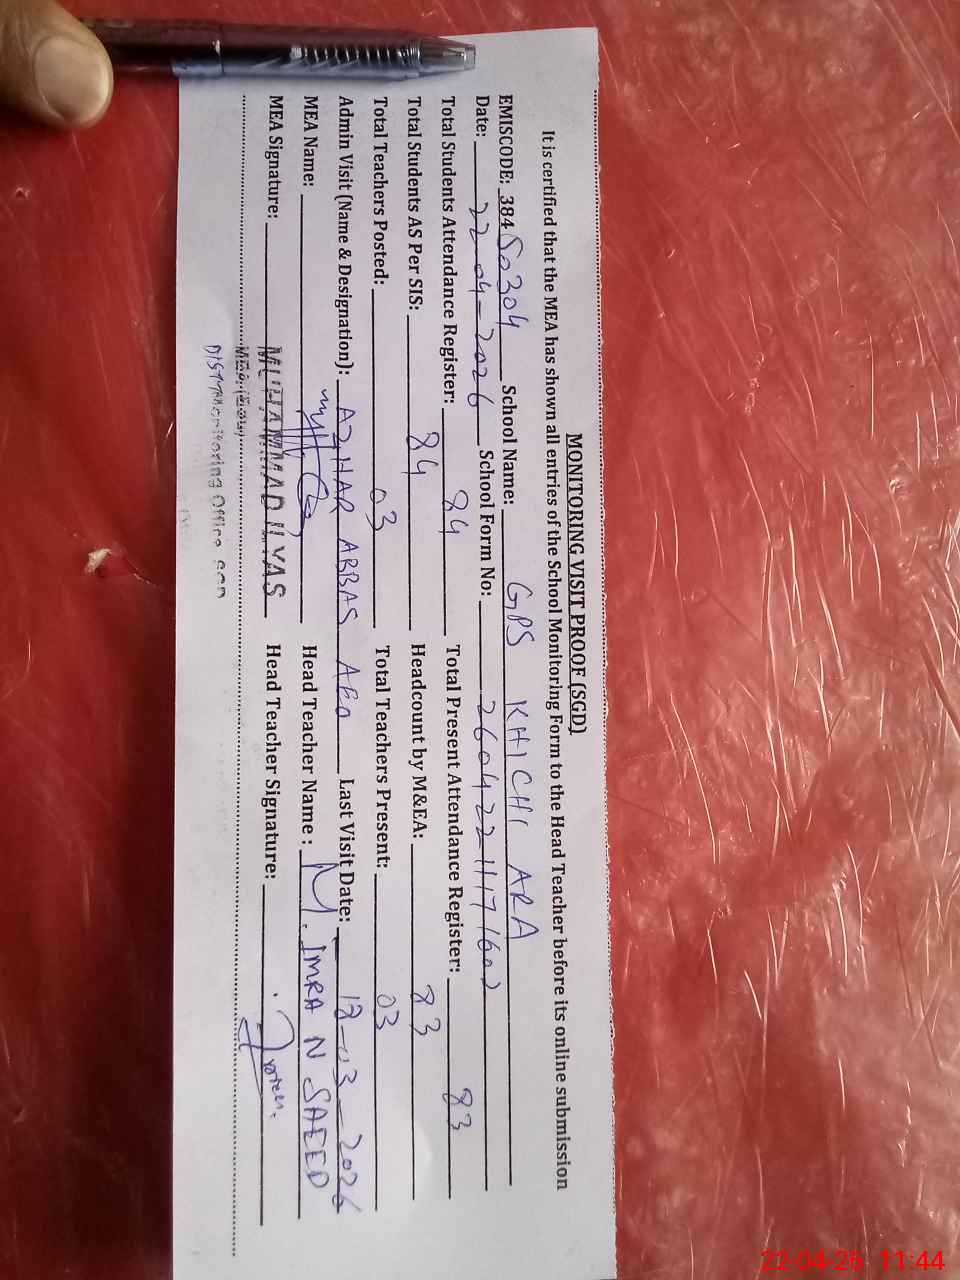 MONITORING VISIT PROOF (SGD)
It is certified that the MEA has shown all entries of the School Monitoring Form to the Head Teacher before its online submission
EMISCODE: 384 50304 School Name: GPS KHICHI ARA
Date: 22-04-2026 School Form No: 26042211171602
Total Students Attendance Register: 84 Total Present Attendance Register: 83
Total Students AS Per SIS: 84 Headcount by M&EA: 83
Total Teachers Posted: 03 Total Teachers Present: 03
Admin Visit (Name & Designation): AZHAR ABBAS AEO Last Visit Date: 12-03-2026
MEA Name: Head Teacher Name : M. IMRAN SAEED
MEA Signature: MUHAMMAD ILYAS Head Teacher Signature:
Distt Monitoring Office SGD
22-04-26 11:44